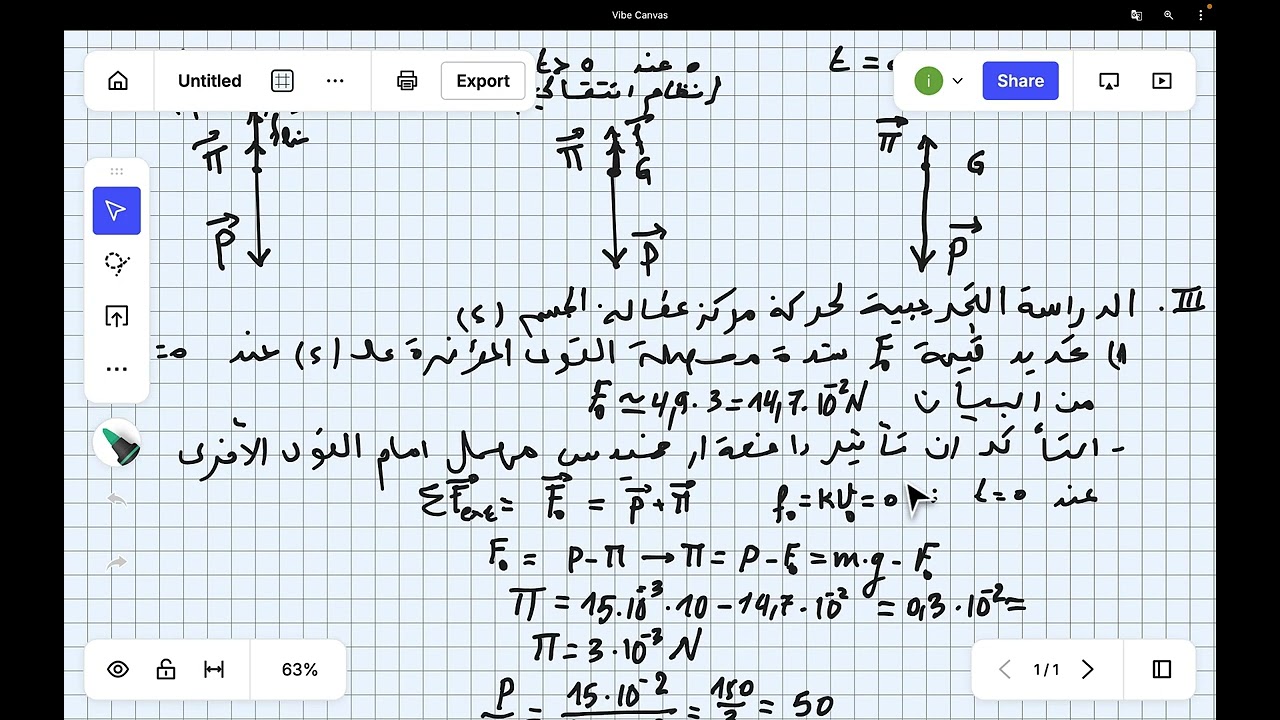 Vibe Canvas
Untitled
Export
i
Share
عند t>0
t =
(نظام انتقالي
π f
π f G
π G
P
P
P
III. الدراسة التجريبية لحركة مركز عطالة الجسم (S)
1) تحديد قيمة F₀ شدة محصلة القوى المؤثرة على (S) عند =0
من البيان F₀ ≃ 4,9·3 = 14,7·10⁻² N
- التأكد ان تأثير دافعة ارخميدس مهمل امام القوى الأخرى
عند t=0 : f₀ = kv₀ = 0 ΣF⃗ext = F⃗₀ = P⃗ + π⃗
F₀ = P - π → π = P - F₀ = m·g - F₀
π = 15·10⁻³·10 - 14,7·10⁻² = 0,3·10⁻² =
π = 3·10⁻³ N
P = 15·10⁻² = 150 = 50
63%
1/1